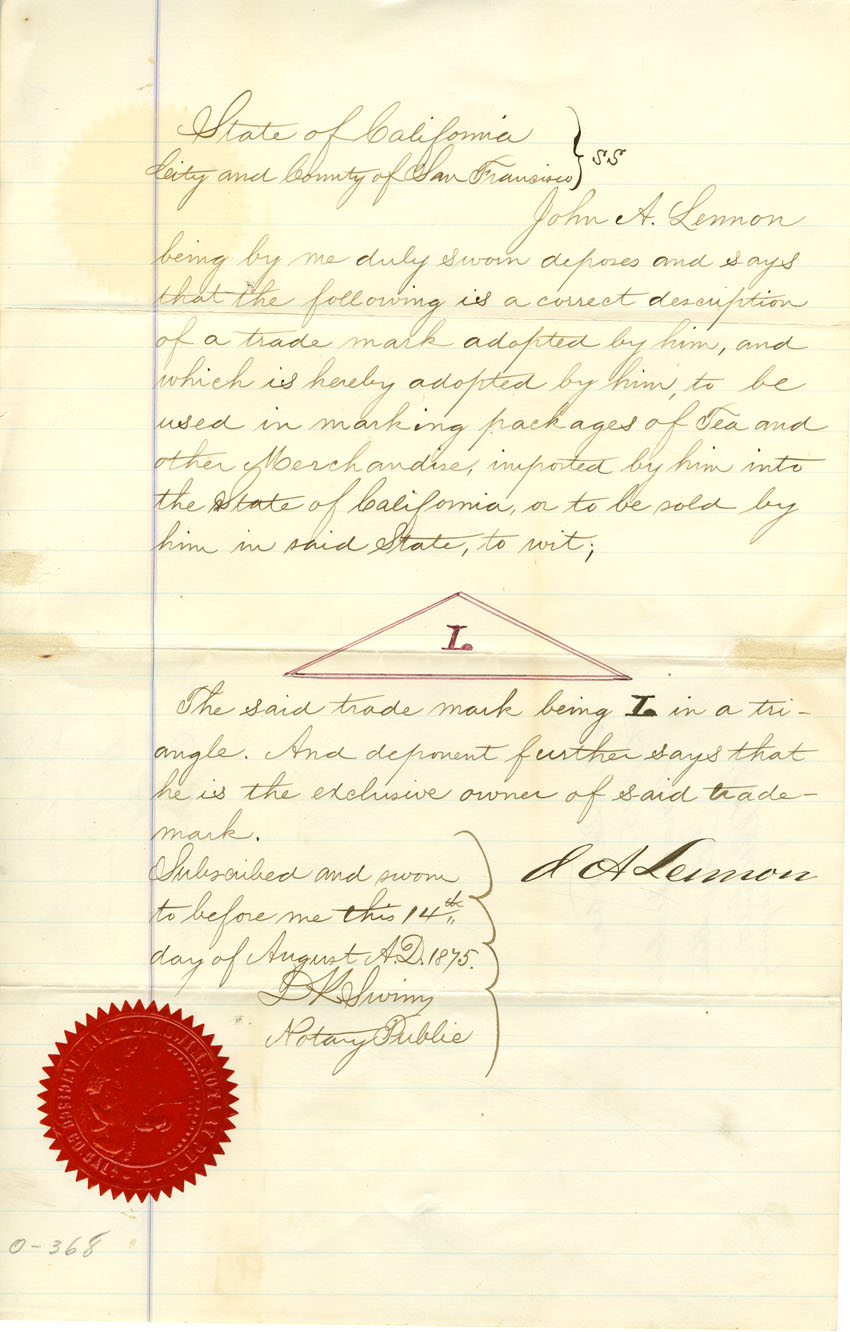 State of California } SS
City and County of San Francisco
John A. Lennon
being by me duly sworn deposes and says
that the following is a correct description
of a trade mark adopted by him, and
which is hereby adopted by him, to be
used in marking packages of Tea and
other Merchandise, imported by him into
the State of California, or to be sold by
him in said State, to wit;
L.
The said trade mark being L. in a tri-
angle. And deponent further says that
he is the exclusive owner of said trade-
mark.
Subscribed and sworn
to before me this 14th
day of August A.D. 1875.
J A Lennon
Notary Public
0-368